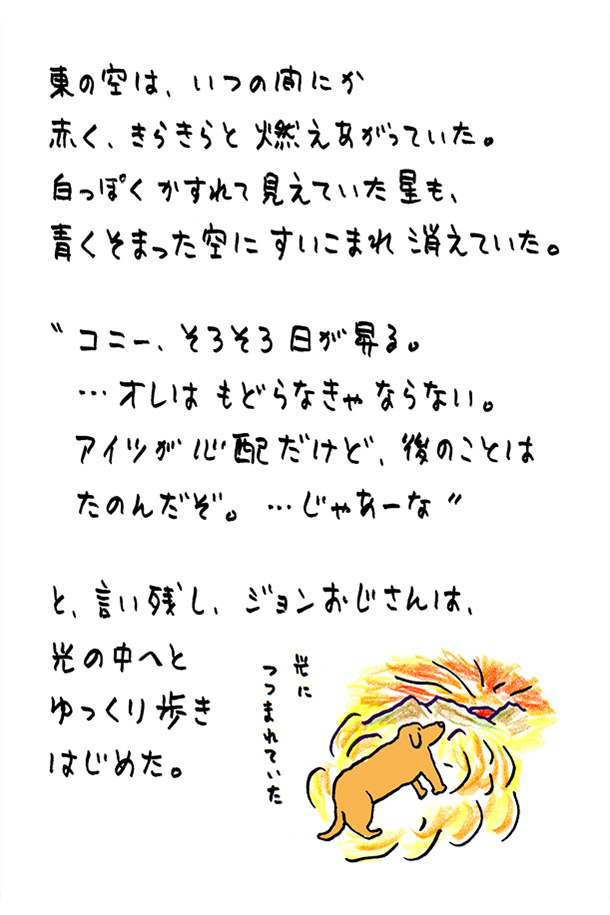 東の空は、いつの間にか
赤く、きらきらと 燃えあがっていた。
白っぽく かすれて 見えていた 星も、
青くそまった空に すいこまれ 消えていた。
〝コニー、そろそろ 日が昇る。
…オレは もどらなきゃ ならない。
アイツが 心配だけど、後のことは
たのんだぞ。…じゃあーな〟
と、言い残し、ジョンおじさんは、
光の中へと
ゆっくり歩き
はじめた。
光に
つつまれていた